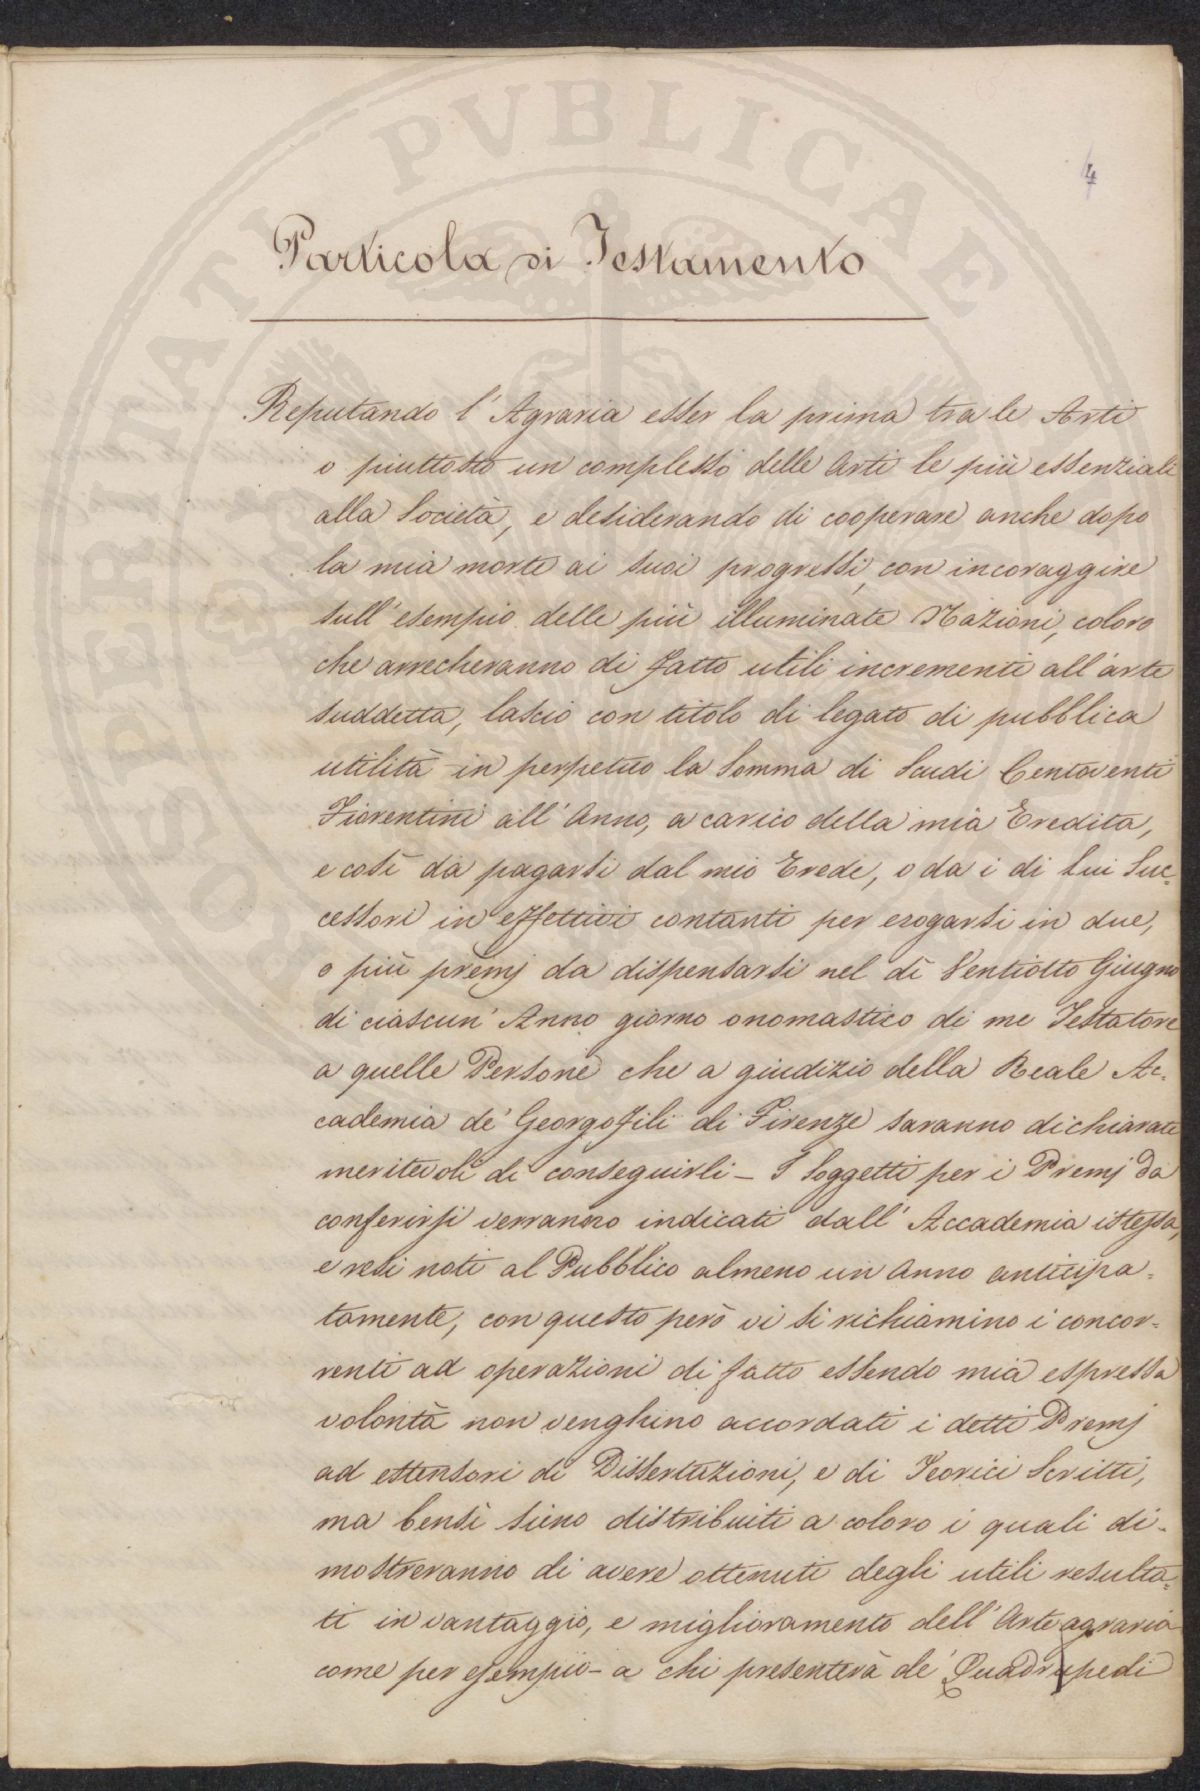 PROSPERITATI PVBLICAE
4
Particola di Testamento
Reputando l'Agraria esser la prima tra le Arti
o piuttosto un complesso delle Arti le più essenziali
alla Società, e desiderando di cooperare anche dopo
la mia morte ai suoi progressi, con incoraggire
sull'esempio delle più illuminate Nazioni, coloro
che arrecheranno di fatto utili incrementi all'arte
suddetta, lascio con titolo di legato di pubblica
utilità in perpetuo la Somma di Scudi Centoventi
Fiorentini all'Anno, a carico della mia Eredità,
e così da pagarsi dal mio Erede, o da i di lui Suc=
cessori in effettivi contanti per erogarsi in due,
o più premj da dispensarsi nel dì Ventiotto Giugno
di ciascun' Anno giorno onomastico di me Testatore
a quelle Persone che a giudizio della Reale Ac=
cademia de' Georgofili di Firenze saranno dichiarate
meritevoli di conseguirli – I Soggetti per i Premj da
conferirsi verranno indicati dall'Accademia istessa,
e resi noti al Pubblico almeno un Anno anticipa=
tamente, con questo però vi si richiamino i concor=
renti ad operazioni di fatto essendo mia espressa
volontà non venghino accordati i detti Premj
ad estensori di Dissertazioni, e di Teorici Scritti,
ma bensì sieno distribuiti a coloro i quali di=
mostreranno di avere ottenuti degli utili resulta=
ti in vantaggio, e miglioramento dell'Arte agraria
come per esempio – a chi presenterà de' Quadrupedi